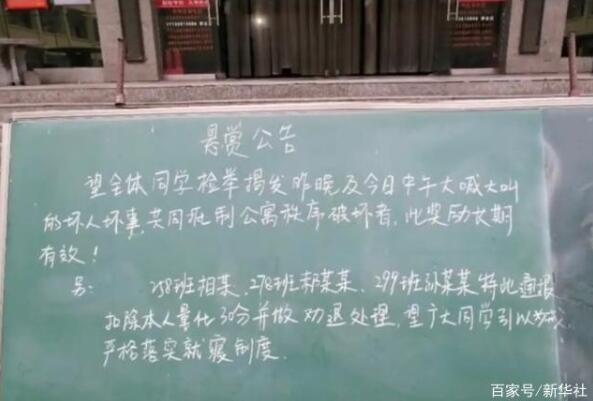 悬赏公告
望全体同学检举揭发昨晚及今日中午大喊大叫
的坏人坏事,共同抵制公寓秩序破坏者,此奖励长期
有效!
另: 258班相某、278班郝某某、299班孙某某特此通报
扣除本人量化30分并做劝退处理,望广大同学引以为戒
严格落实就寝制度.
百家号/新华社